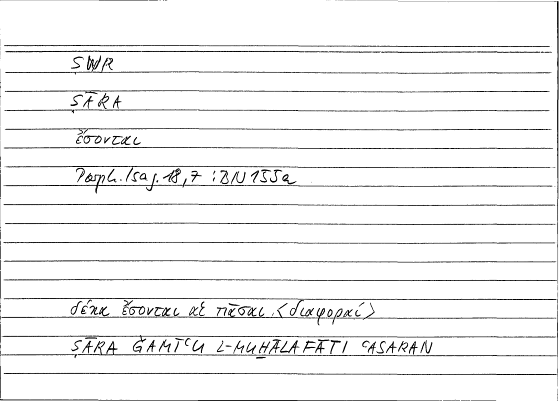 ṢWR
ṢĀRA
ἔσονται
Porph. Isag. 18,7 : BN 155a
δέκα ἔσονται αἱ πᾶσαι <διαφοραί>
ṢĀRA ǦAMĪʿU L-MUḪĀLAFĀTI ʿAŠARAN